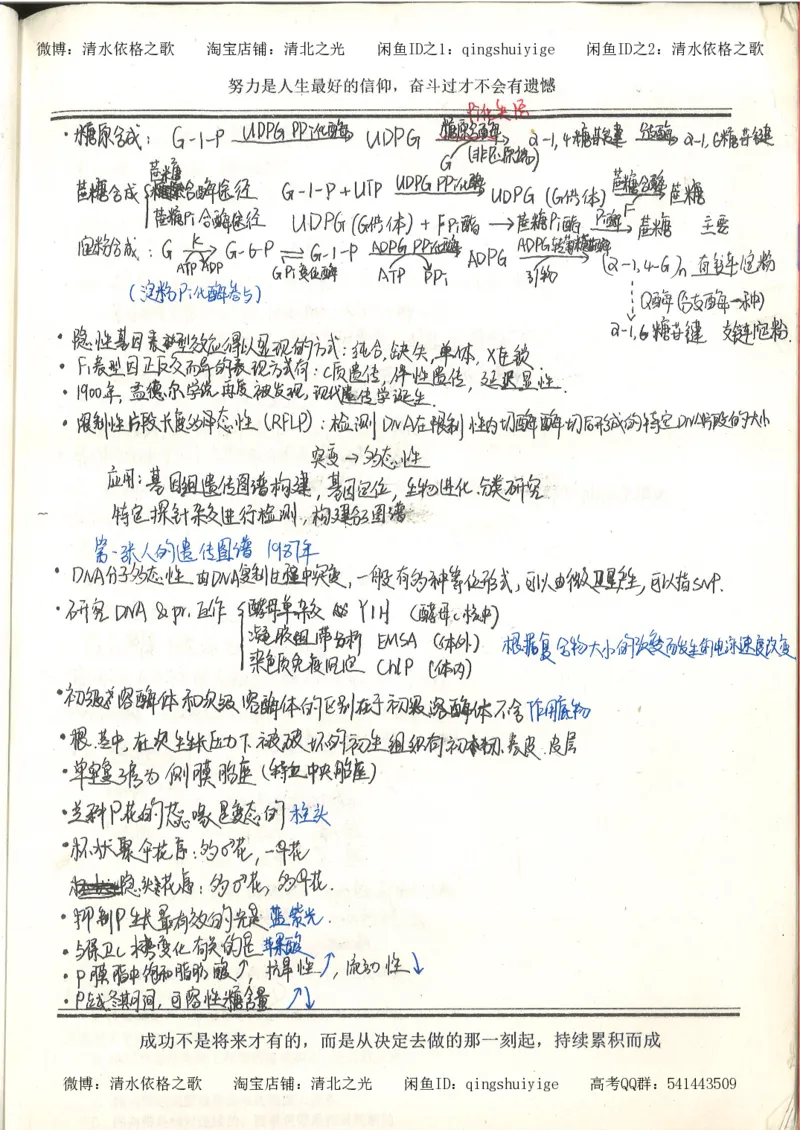 微博：清水依格之歌 淘宝店铺：清北之光 闲鱼ID之1：qingshuiyige 闲鱼ID之2：清水依格之歌
努力是人生最好的信仰，奋斗过才不会有遗憾
Pi化末尾
·糖原合成：G-1-P UDPG PPi化酶 UDPG 糖原合酶 α-1,4糖苷键 分支酶 α-1,6糖苷键
G (非还原端)
蔗糖合成 蔗糖合酶途径 G-1-P+UTP UDPG PPi化酶 UDPG (G供体) 蔗糖合酶 F 蔗糖
蔗糖Pi合酶途径 UDPG(G供体) + FPi酯 → 蔗糖Pi酯 Pi酶 蔗糖 主要
淀粉合成：G K G-6-P ⇌ G-1-P ADPG PPi化酶 ADPG ADPG转葡糖苷酶 (α-1,4-G)n 直链淀粉
ATP ADP GPi变位酶 ATP PPi 引物
(淀粉Pi化酶参与) Q酶(分支酶一种)
α-1,6糖苷键 支链淀粉.
·隐性基因表型效应得以显现的方式：纯合,缺失,单体,X连锁
·F₁表型因正反交而异的表现方式有：C质遗传，伴性遗传，延迟显性.
·1900年，孟德尔学说再度被发现，现代遗传学诞生.
·限制性片段长度多态性（RFLP）：检测DNA在限制性内切酶酶切后形成的特定DNA片段的大小
突变→多态性
应用：基因组遗传图谱构建，基因定位，生物进化.分类研究
特定探针杂交进行检测，构建图谱
第一张人的遗传图谱 1987年
·DNA分子多态性 由DNA复制过程中突变，一般有多种等位形式，可以由微卫星产生，可以指SNP.
·研究DNA & pr.互作 酵母单杂交 Y1H (酵母C核中)
凝胶阻滞分析 EMSA (体外) 根据复合物大小的改变而发生的电泳速度改变
染色质免疫沉淀 ChIP (体内)
·初级溶酶体和次级溶酶体的区别在于初级溶酶体不含作用底物
·根.茎中,在次生生长压力下被破坏的初生组织有初木韧.表皮.皮层
·单室复子房为侧膜胎座(特立中央胎座)
·兰科P花的蕊喙是变态的柱头
·杯状聚伞花序：多♂花，一♀花
隐头花序：多♂花，多♀花.
·抑制P生长最有效的光是蓝紫光.
·与保卫C糖变化有关的是苹果酸
·P膜脂中饱和脂肪酸↑，抗旱性↑，流动性↓
·P越冬期间，可溶性糖含量↑↓
成功不是将来才有的，而是从决定去做的那一刻起，持续累积而成
微博：清水依格之歌 淘宝店铺：清北之光 闲鱼ID：qingshuiyige 高考QQ群：541443509